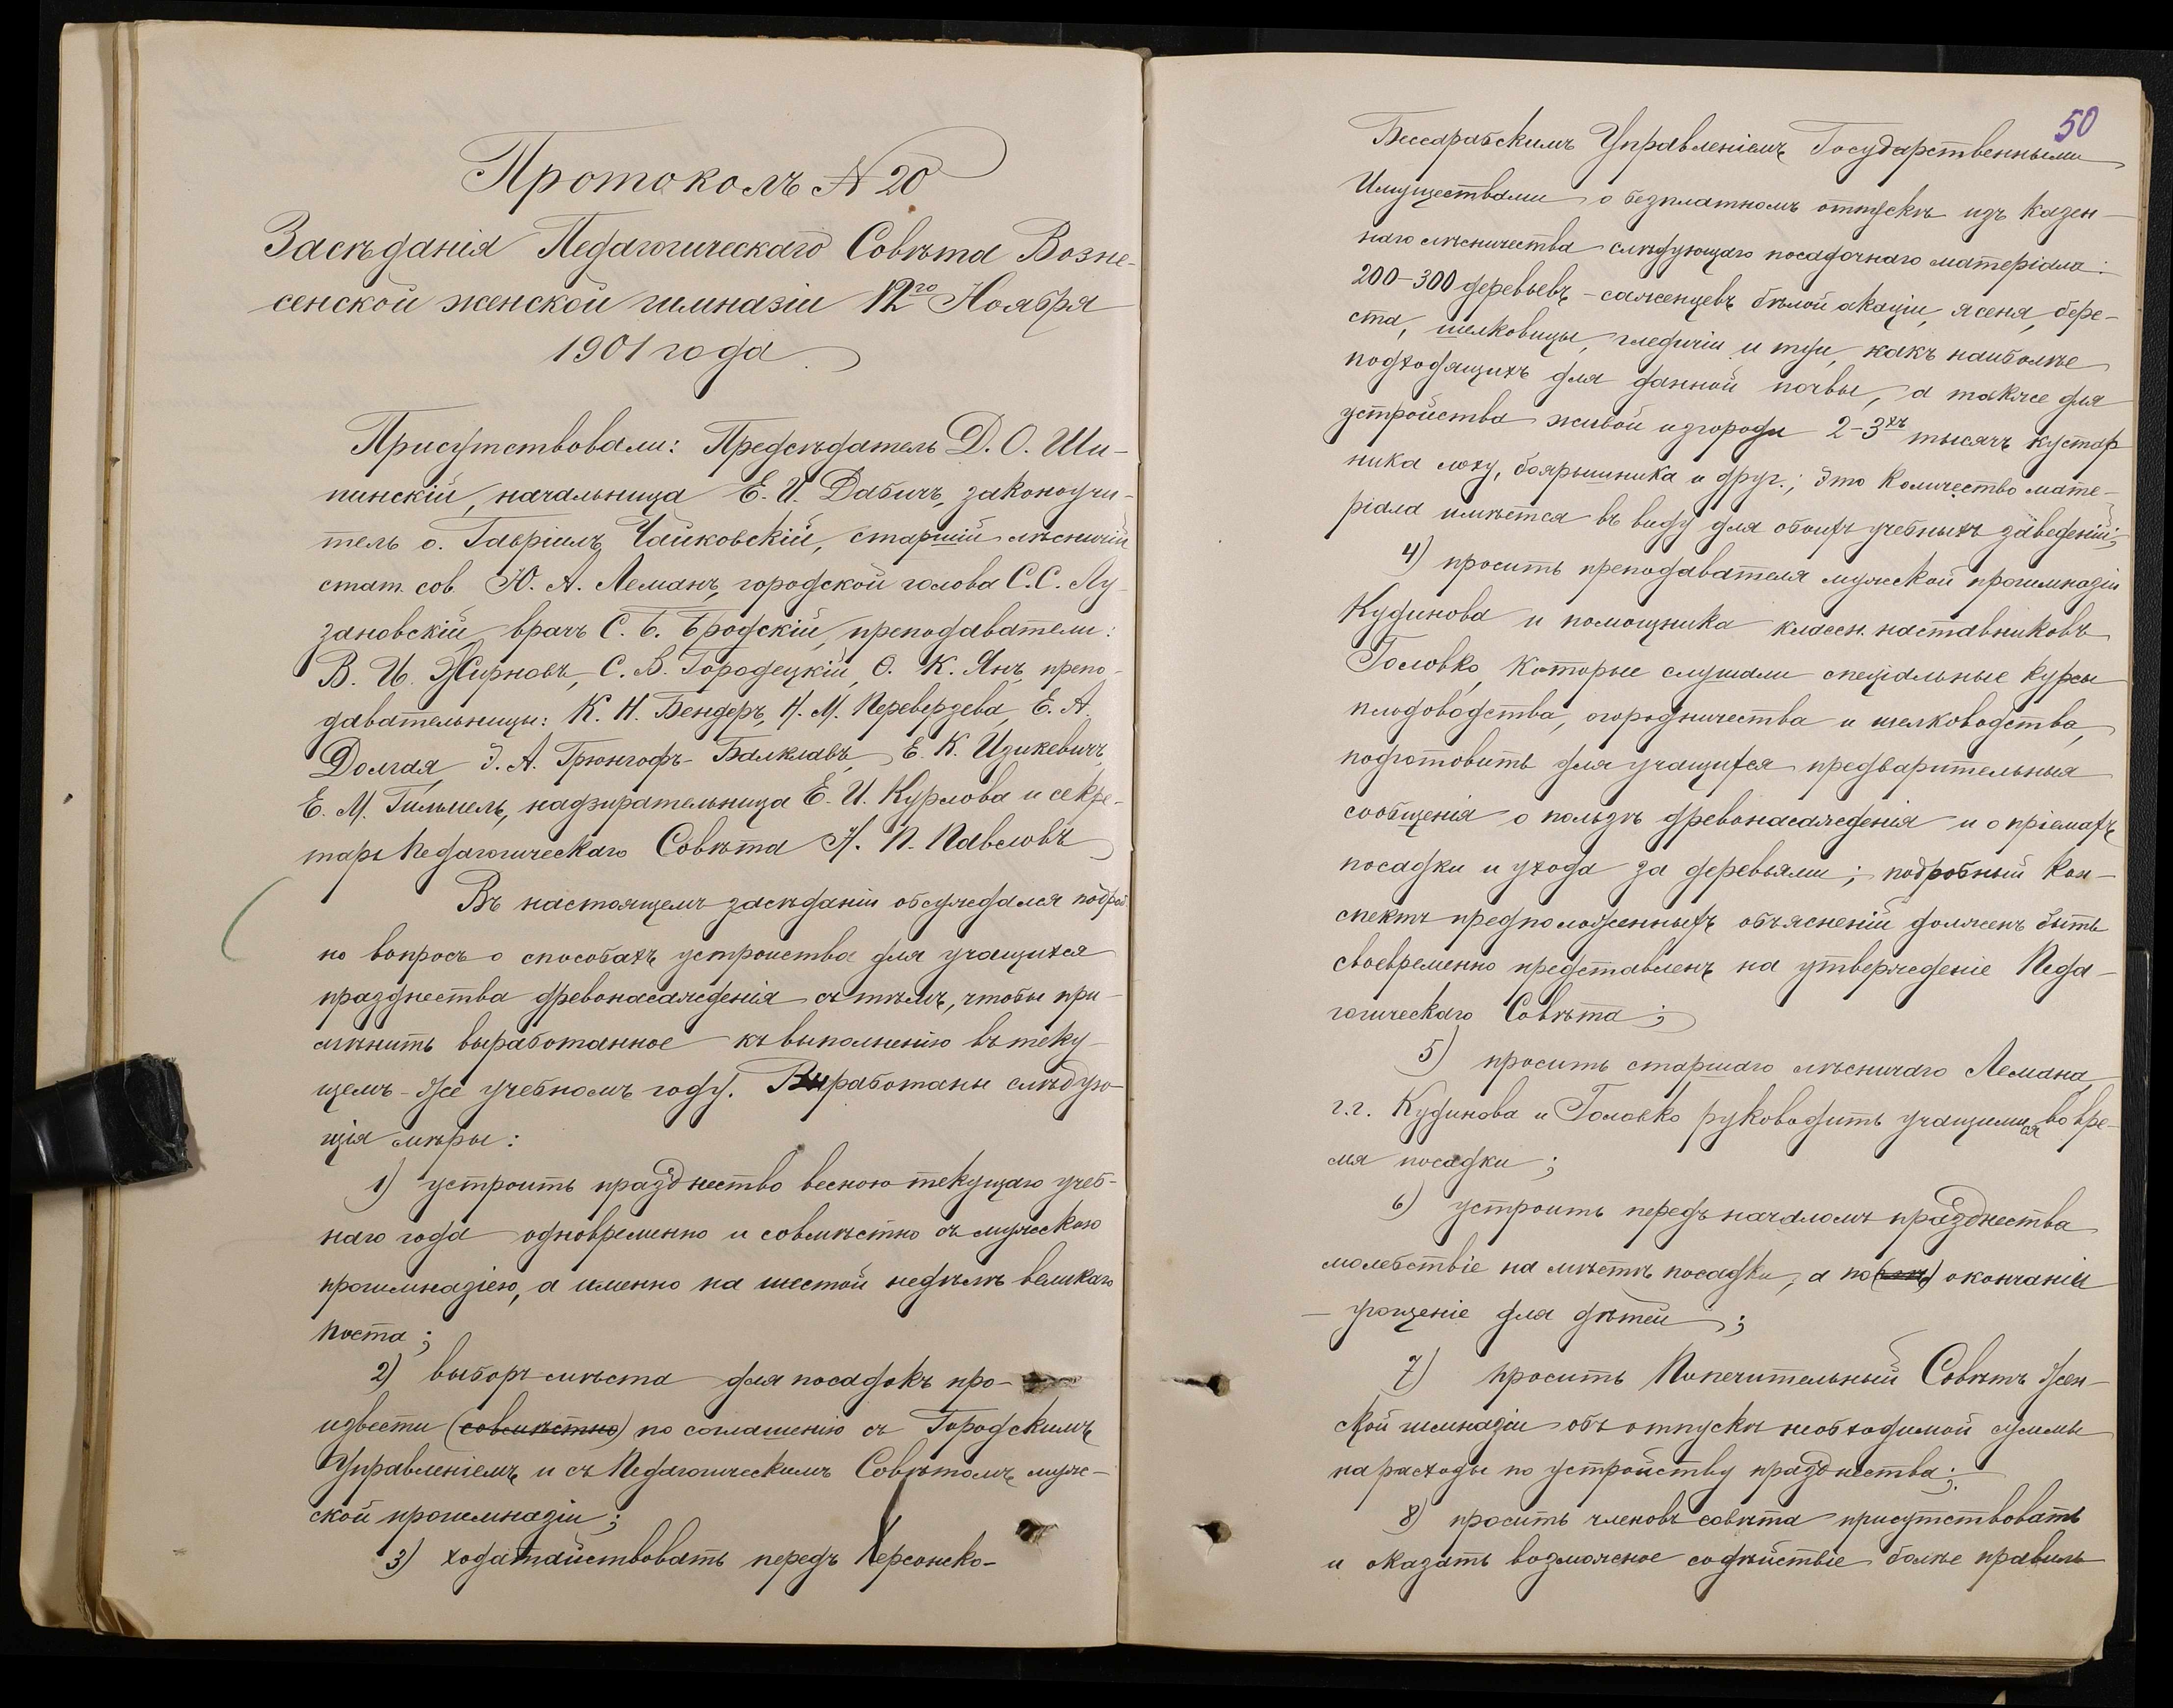 Протоколъ № 20
Засѣданія Педагогическаго Совѣта Возне-
сенской женской гимназіи 12го Ноября
1901 года
Присутствовали: Предсѣдатель Д. О. Ши-
пинскій, начальница Е. И. Дабичъ, законоучи-
тель о. Гавріилъ Чайковскій, старшій лѣсничій
стат. сов. Ю. А. Леманъ, городской голова С. С. Лу-
зановскій, врачъ С. Б. Бродскій, преподаватели:
В. И. Жирновъ, С. В. Городецкій, О. К. Янъ, препо-
давательницы: К. Н. Бендеръ, Н. М. Переверзева, Е. А.
Долгая, Э. А. Грюнгофъ-Балклавъ, Е. К. Ицикевичъ,
Е. М. Гильмель, надзирательница Е. И. Курлова и секре-
тарь Педагогическаго Совѣта Н. П. Павловъ
Въ настоящемъ засѣданіи обсуждался подроб
но вопросъ о способахъ устройства для учащихся
празднества древонасажденія съ тѣмъ, чтобы при-
мѣнить выработанное къ выполненію въ теку-
щемъ-же учебномъ году. Выработаны слѣдую-
щія мѣры:
1) устроить празднество весною текущаго учеб-
наго года одновременно и совмѣстно съ мужскою
прогимназіею, а именно на шестой недѣлѣ великаго
поста;
2) выборъ мѣста для посадокъ про-
извести (совмѣстно) по соглашенію съ Городскимъ
Управленіемъ и съ Педагогическимъ Совѣтомъ муж-
ской прогимназіи;
3) ходатайствовать передъ Херсонско-
50
Бессарабскимъ Управленіемъ Государственными
Имуществами о безплатномъ отпускѣ изъ казен-
наго лѣсничества слѣдующаго посадочнаго матеріала:
200-300 деревьевъ-саженцевъ бѣлой акаціи, ясеня, бере-
ста, шелковицы, гледичіи и туи, какъ наиболѣе
подходящихъ для данной почвы, а также для
устройства живой изгороди 2-3хъ тысячъ кустар
ника лоху, боярышника и друг.; это количество мате-
ріала имѣется въ виду для обоихъ учебныхъ заведеній;
4) просить преподавателя мужской прогимназіи
Кудинова и помощника классн. наставниковъ
Головко, которые слушали спеціальные курсы
плодоводства, огородничества и шелководства,
подготовить для учащихся предварительныя
сообщенія о пользѣ древонасажденія и о пріемахъ
посадки и ухода за деревьями; подробный кон-
спектъ предположенныхъ объясненій долженъ быть
своевременно представленъ на утвержденіе Педа-
гогическаго Совѣта;
5) просить старшаго лѣсничаго Лемана,
г.г. Кудинова и Головко руководить учащимися во вре-
мя посадки;
6) устроить передъ началомъ празднества
молебствіе на мѣстѣ посадки, а по окончаніи
- угощеніе для дѣтей;
7) просить Попечительный Совѣтъ жен-
ской гимназіи объ отпускѣ необходимой суммы
на расходы по устройству празднества;
8) просить членовъ совѣта присутствовать
и оказать возможное содѣйствіе болѣе правиль